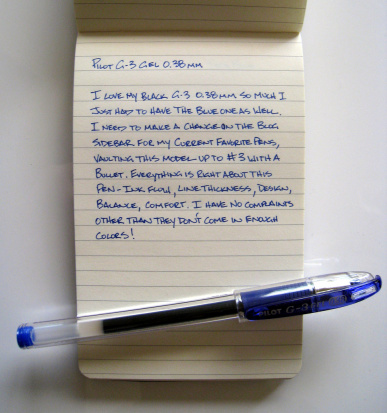 PILOT G-3 GEL 0.38MM
I LOVE MY BLACK G-3 0.38MM SO MUCH I
JUST HAD TO HAVE THE BLUE ONE AS WELL.
I NEED TO MAKE A CHANGE ON THE BLOG
SIDEBAR FOR MY CURRENT FAVORITE PENS,
VAULTING THIS MODEL UP TO #3 WITH A
BULLET. EVERYTHING IS RIGHT ABOUT THIS
PEN - INK FLOW, LINE THICKNESS, DESIGN,
BALANCE, COMFORT. I HAVE NO COMPLAINTS
OTHER THAN THEY DON'T COME IN ENOUGH
COLORS!
PILOT G-3